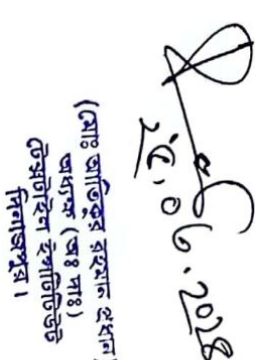 ২৫.০৬.২০২৪
(মোঃ আতিকুর রহমান প্রধান)
অধ্যক্ষ (অঃ দাঃ)
টেক্সটাইল ইনস্টিটিউট
দিনাজপুর।